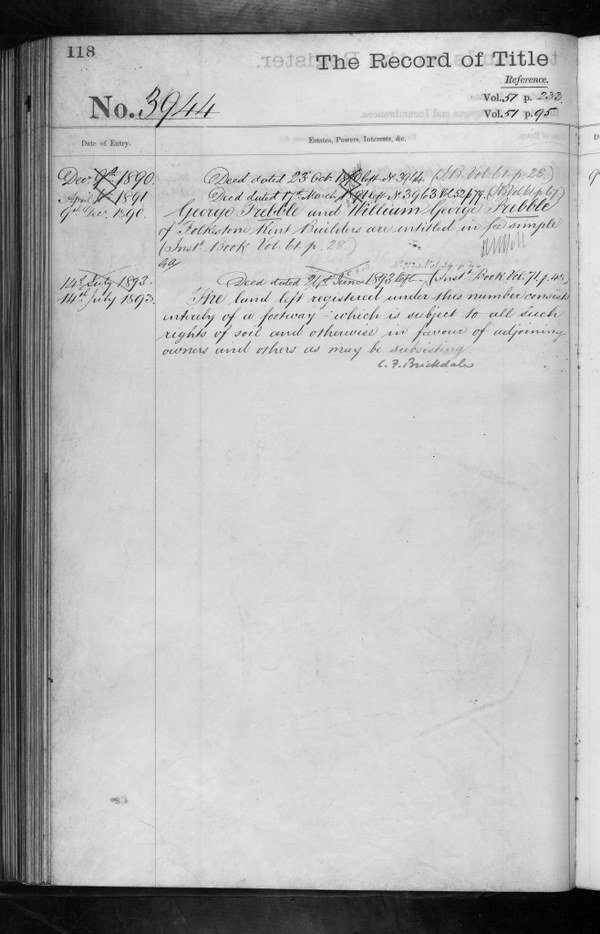 118
The Record of Title
Reference.
No. 3944
Vol. 57 p. 233
Vol. 51 p. 95
Date of Entry.
Estates, Powers, Interests, &c.
Decr 9th 1890. Deed dated 23 Oct. 1890 left No 3944. (I.B. Vol 61. p. 28.)
April 1891 Deed dated 17th March 1891 left No 3963 Vol. 52 p. 77. (I.B. Vol. 61 p. 67)
9th Dec. 1890. George Prebble and William George Prebble
of Folkestone Kent Builders are entitled in fee simple
(Inst. Book Vol. 61. p. 28.)
14th July 1893. Deed dated 24th June 1893 left (Inst. Book Vol. 71. p. 48)
14th July 1893. The land left registered under this number consists
entirely of a footway - which is subject to all such
rights of soil and otherwise in favour of adjoining
owners and others as may be subsisting.
C. F. Brickdale